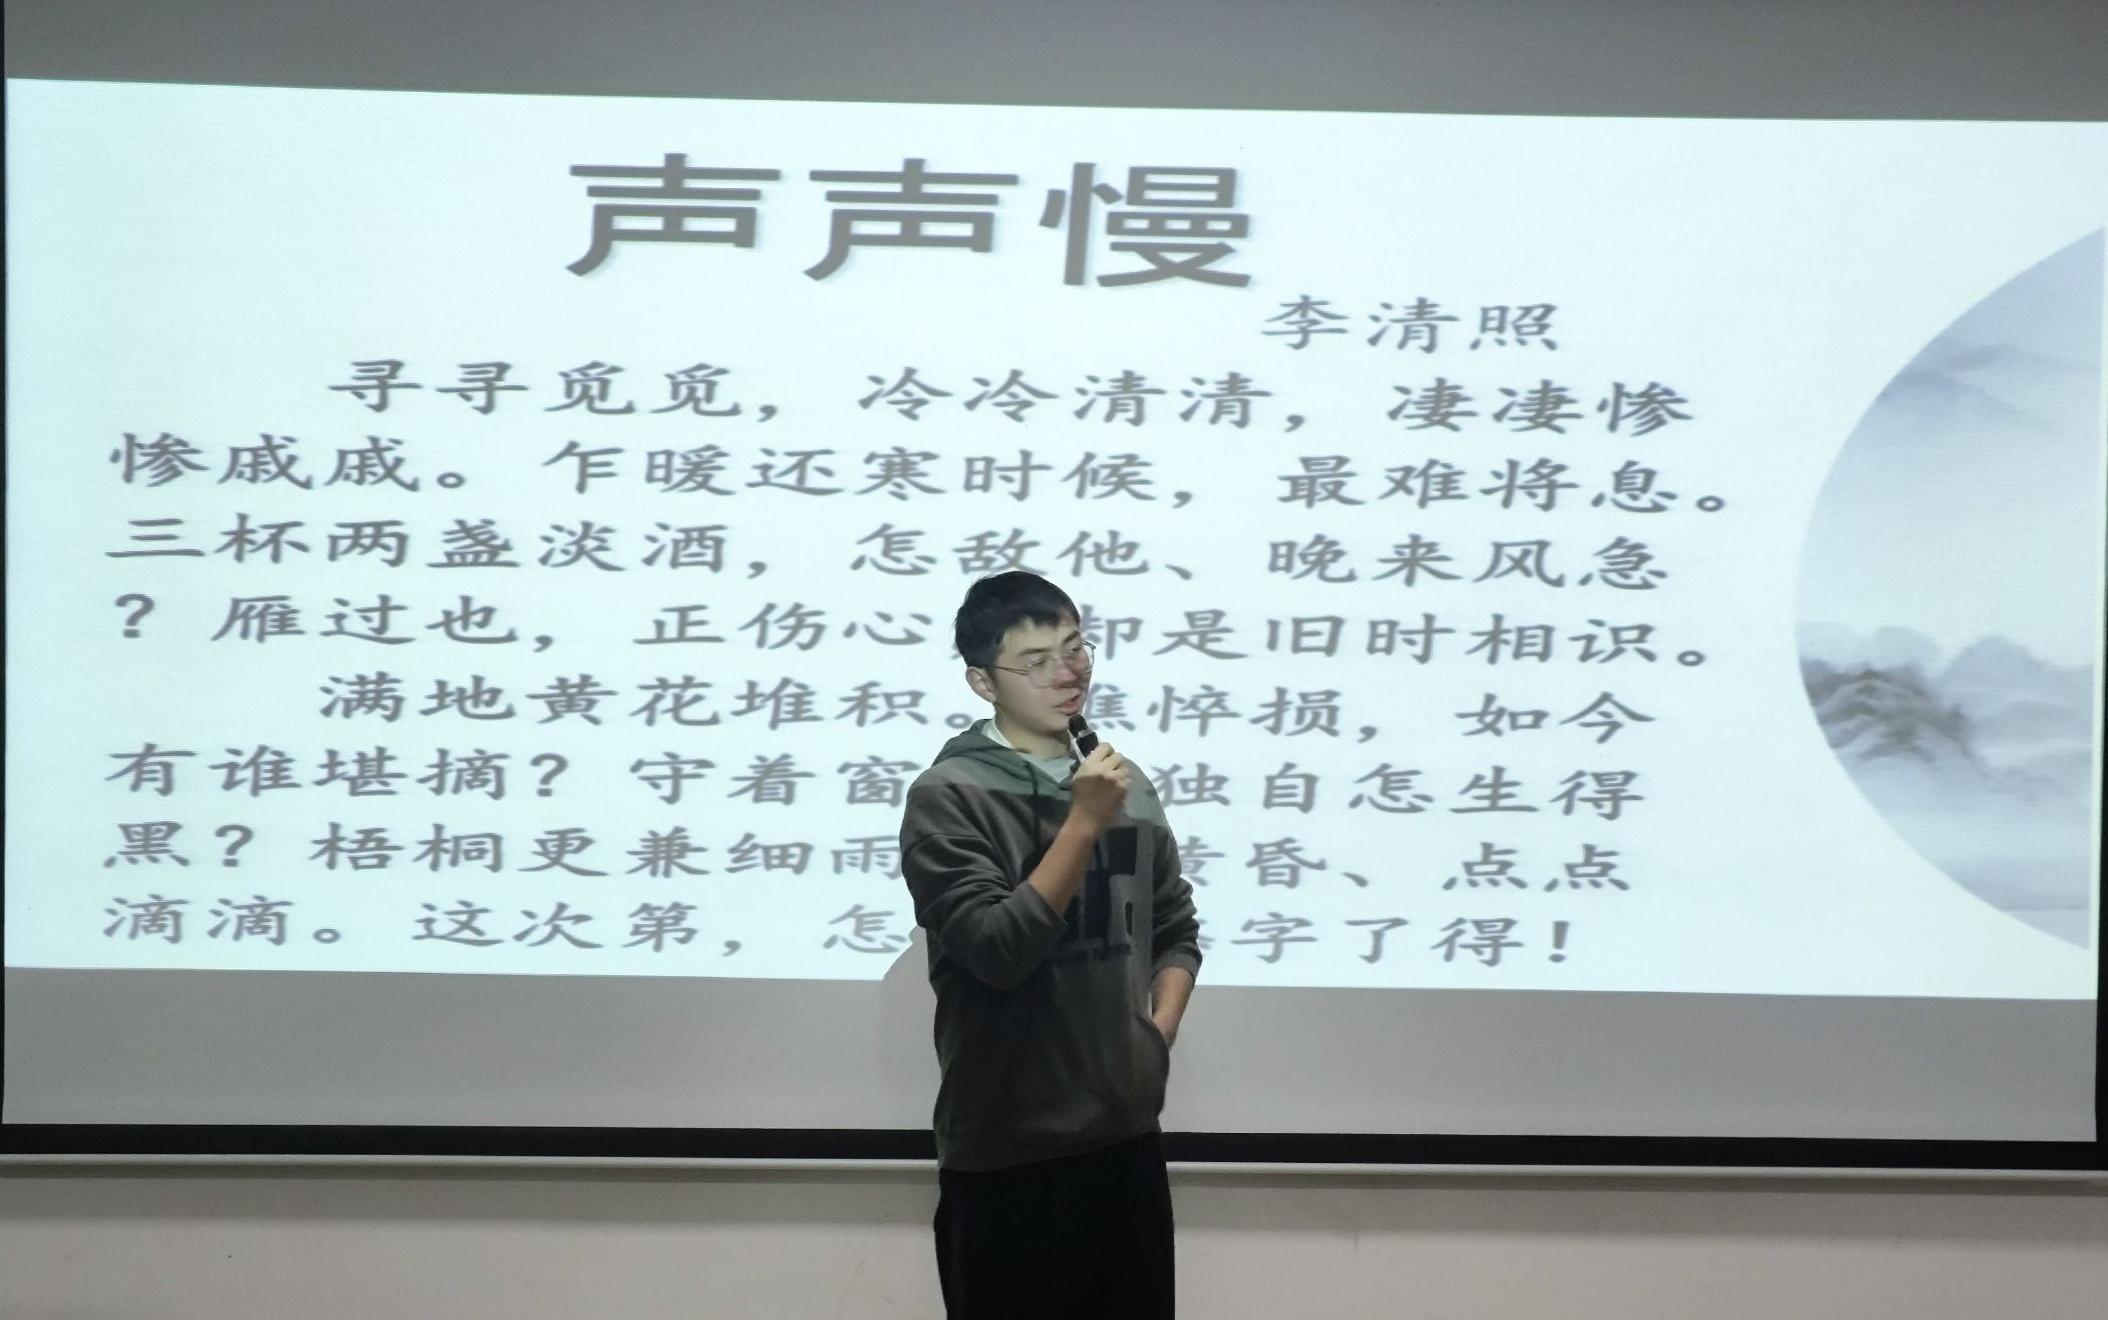 声声慢
李清照
寻寻觅觅，冷冷清清，凄凄惨
惨戚戚。乍暖还寒时候，最难将息。
三杯两盏淡酒，怎敌他、晚来风急
？雁过也，正伤心，却是旧时相识。
满地黄花堆积。憔悴损，如今
有谁堪摘？守着窗 独自怎生得
黑？梧桐更兼细雨 黄昏、点点
滴滴。这次第，怎 字了得！